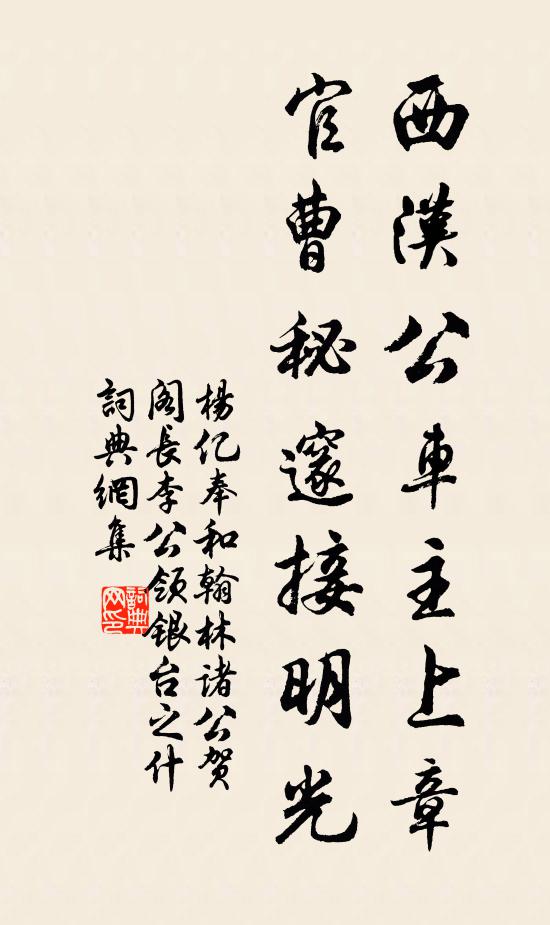 西漢公車主上章
官曹秘邃接明光
楊亿奉和翰林诸公贺
阁長李公領銀台之什
詞典網集
詞典网印